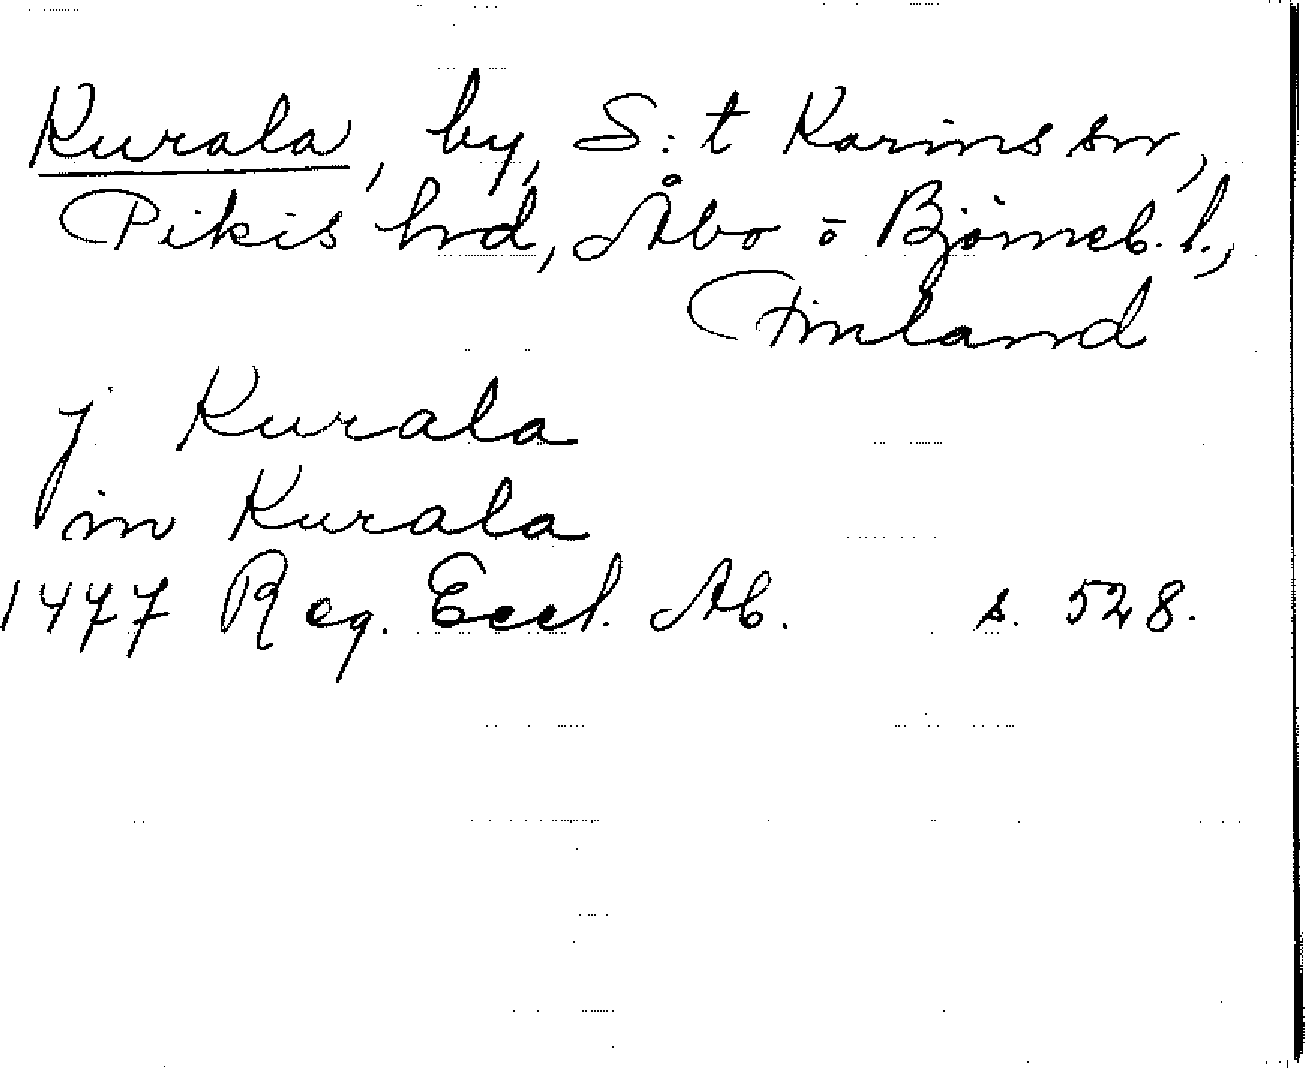 Kurala, by, S:t Karins sn,
Pikis hrd, Åbo o Björneb. l.,
Finland
j Kurala
in Kurala
1477 Reg. Eccl. Ab. s. 528.